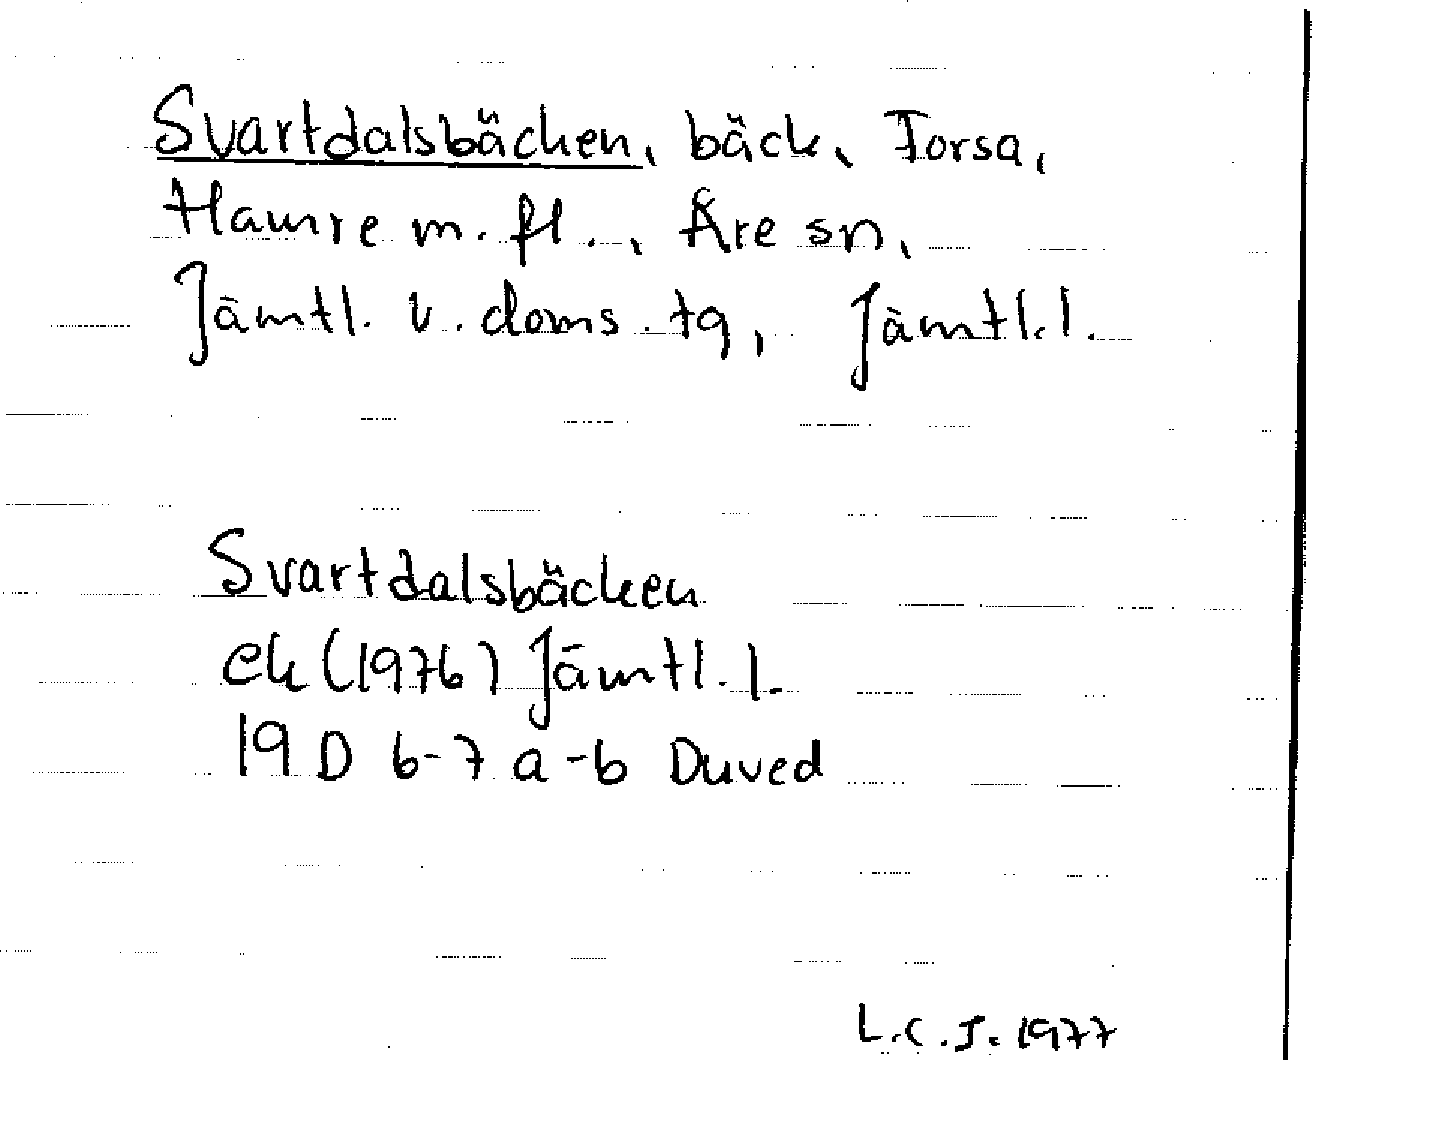 Svartdalsbäcken, bäck, Forsa,
Hamre m. fl., Åre sn,
Jämtl. v. doms. tg, Jämtl. l.
Svartdalsbäcken
ek (1976) Jämtl. l.
19 D 6-7 a-b Duved
L.C.J. 1977